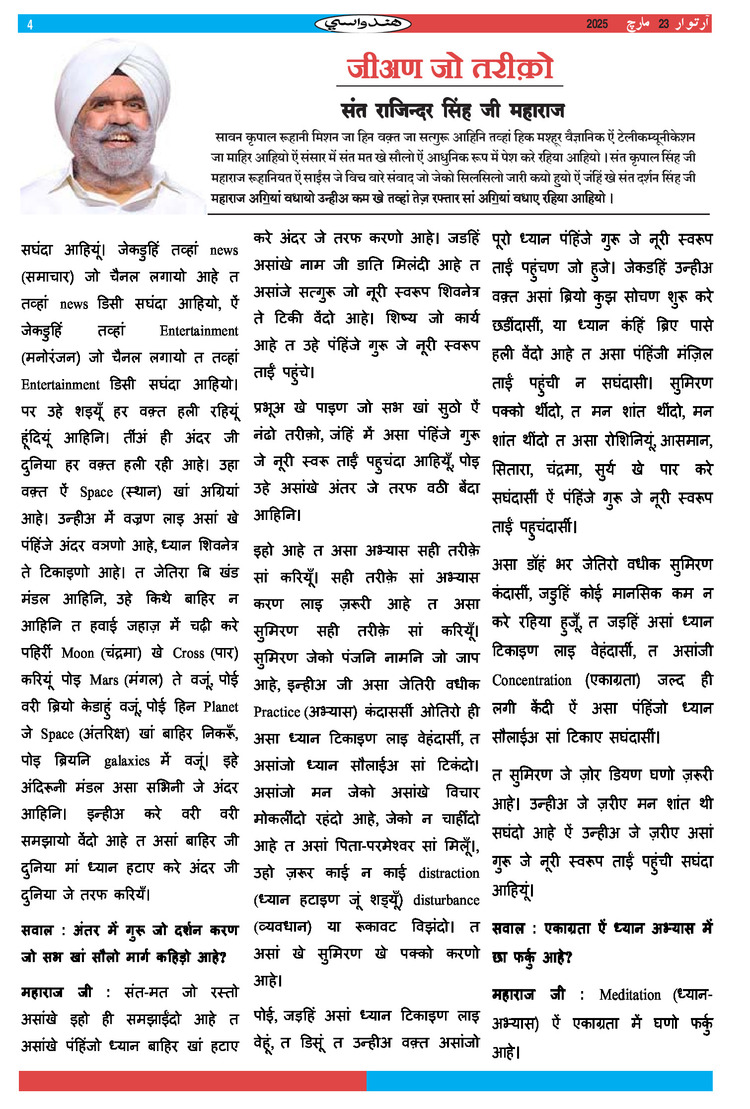 4
هندواسي
آرتوار 23 مارچ 2025
जीअण जो तरीक़ो
संत राजिन्दर सिंह जी महाराज
सावन कृपाल रूहानी मिशन जा हिन वक़्त जा सत्गुरू आहिनि तव्हां हिक मश्हूर वैज्ञानिक ऐं टेलीकम्यूनीकेशन
जा माहिर आहियो ऐं संसार में संत मत खे सौलो ऐं आधुनिक रूप में पेश करे रहिया आहियो । संत कृपाल सिंह जी
महाराज रूहानियत ऐं साईंस जे विच वारे संवाद जो जेको सिलसिलो जारी कयो हुयो ऐं जंहिं खे संत दर्शन सिंह जी
महाराज अग्यिां वधायो उन्हीअ कम खे तव्हां तेज़ रफ्तार सां अग्यिां वधाए रहिया आहियो ।
सघंदा आहियूं। जेकडुहिं तव्हां news
(समाचार) जो चैनल लगायो आहे त
तव्हां news डिसी सघंदा आहियो, ऐं
जेकडुहिं तव्हां Entertainment
(मनोरंजन) जो चैनल लगायो त तव्हां
Entertainment डिसी सघंदा आहियो।
पर उहे शइयूँ हर वक़्त हली रहियूं
हूंदियूं आहिनि। तींअं ही अंदर जी
दुनिया हर वक़्त हली रही आहे। उहा
वक़्त ऐं Space (स्थान) खां अग्रियां
आहे। उन्हीअ में वञण लाइ असां खे
पंहिंजे अंदर वञणो आहे, ध्यान शिवनेत्र
ते टिकाइणो आहे। त जेतिरा बि खंड
मंडल आहिनि, उहे किथे बाहिर न
आहिनि त हवाई जहाज़ में चढ़ी करे
पहिरीं Moon (चंद्रमा) खे Cross (पार)
करियूं पोइ Mars (मंगल) ते वजूं, पोई
वरी ब्रियो केडाहुं वजूं, पोई हिन Planet
जे Space (अंतरिक्ष) खां बाहिर निकरूँ,
पोइ ब्रियनि galaxies में वजूं। इहे
अंदिरूनी मंडल असा सभिनी जे अंदर
आहिनि। इन्हीअ करे वरी वरी
समझायो वेंदो आहे त असां बाहिर जी
दुनिया मां ध्यान हटाए करे अंदर जी
दुनिया जे तरफ करियँ।
सवाल : अंतर में गुरू जो दर्शन करण
जो सभ खां सौलो मार्ग कहिड़ो आहे?
महाराज जी : संत-मत जो रस्तो
असांखे इहो ही समझाईंदो आहे त
असांखे पंहिंजो ध्यान बाहिर खां हटाए
करे अंदर जे तरफ करणो आहे। जडहिं
असांखे नाम जी डाति मिलंदी आहे त
असांजे सत्गुरू जो नूरी स्वरूप शिवनेत्र
ते टिकी वेंदो आहे। शिष्य जो कार्य
आहे त उहे पंहिंजे गुरू जे नूरी स्वरूप
ताईं पहुंचे।
प्रभूअ खे पाइण जो सभ खां सुठो ऐं
नंढो तरीक़ो, जंहिं में असा पंहिंजे गुरू
जे नूरी स्वरू ताईं पहुचंदा आहियूँ, पोइ
उहे असांखे अंतर जे तरफ वठी बेंदा
आहिनि।
इहो आहे त असा अभ्यास सही तरीक़े
सां करियूँ। सही तरीक़े सां अभ्यास
करण लाइ ज़रूरी आहे त असा
सुमिरण सही तरीक़े सां करियूँ।
सुमिरण जेको पंजनि नामनि जो जाप
आहे, इन्हीअ जी असा जेतिरी वधीक
Practice (अभ्यास) कंदासर्सी ओतिरो ही
असा ध्यान टिकाइण लाइ वेहंदार्सी, त
असांजो ध्यान सौलाईअ सां टिकंदो।
असांजो मन जेको असांखे विचार
मोकलींदो रहंदो आहे, जेको न चाहींदो
आहे त असां पिता-परमेश्वर सां मिलूँ।,
उहो ज़रूर काई न काई distraction
(ध्यान हटाइण जूं शइयूँ) disturbance
(व्यवधान) या रूकावट विझंदो। त
असां खे सुमिरण खे पक्को करणो
आहे।
पोई, जडहिं असां ध्यान टिकाइण लाइ
वेहूं, त डिसूं त उन्हीअ वक़्त असांजो
पूरो ध्यान पंहिंजे गुरू जे नूरी स्वरूप
ताईं पहुंचण जो हुजे। जेकडहिं उन्हीअ
वक़्त असां ब्रियो कुझ सोचण शुरू करे
छडींदार्सी, या ध्यान कंहिं ब्रिए पासे
हली वेंदो आहे त असा पंहिंजी मंज़िल
ताईं पहुंची न सघंदासी। सुमिरण
पक्को थींदो, त मन शांत थींदो, मन
शांत थींदो त असा रोशिनियूं, आसमान,
सितारा, चंद्रमा, सुर्य खे पार करे
सघंदार्सी ऐं पंहिंजे गुरू जे नूरी स्वरूप
ताईं पहुचंदार्सी।
असा डॉहं भर जेतिरो वधीक सुमिरण
कंदार्सी, जडुहिं कोई मानसिक कम न
करे रहिया हुजूँ, त जडहिं असां ध्यान
टिकाइण लाइ वेहंदार्सी, त असांजी
Concentration (एकाग्रता) जल्द ही
लगी केंदी ऐं असा पंहिंजो ध्यान
सौलाईअ सां टिकाए सघंदार्सी।
त सुमिरण जे ज़ोर डियण घणो ज़रूरी
आहे। उन्हीअ जे ज़रीए मन शांत थी
सघंदो आहे ऐं उन्हीअ जे ज़रीए असां
गुरू जे नूरी स्वरूप ताईं पहुंची सघंदा
आहियूं।
सवाल : एकाग्रता ऐं ध्यान अभ्यास में
छा फर्कु आहे?
महाराज जी : Meditation (ध्यान-
अभ्यास) ऐं एकाग्रता में घणो फर्कु
आहे।